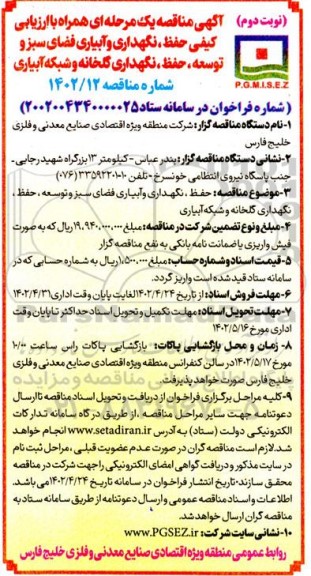 (نوبت دوم)
آگهی مناقصه یک مرحله ای همراه با ارزیابی
کیفی حفظ ، نگهداری و آبیاری فضای سبز و
توسعه ، حفظ ، نگهداری گلخانه و شبکه آبیاری
شماره مناقصه ۱۴۰۲/۱۲
P.G.M.I.S.E.Z
(شماره فراخوان در سامانه ستاد ۲۰۰۲۰۰۴۳۴۰۰۰۰۰۲۵)
۱-نام دستگاه مناقصه گزار: شرکت منطقه ویژه اقتصادی صنایع معدنی و فلزی
خلیج فارس
۲-نشانی دستگاه مناقصه گزار: بندر عباس - کیلومتر ۱۳ بزرگراه شهید رجایی -
جنب پاسگاه نیروی انتظامی خونسرخ - تلفن ۳۳۵۹۲۲۰۱۰ (۰۷۶)
۳-موضوع مناقصه: حفظ ، نگهداری وآبیاری فضای سبز و توسعه ، حفظ ،
نگهداری گلخانه و شبکه آبیاری
۴-مبلغ و نوع تضمین شرکت در مناقصه: مبلغ ۱۹.۹۴۰.۰۰۰.۰۰۰ ریال که به صورت
فیش واریزی یا ضمانت نامه بانکی به نفع مناقصه گزار
۵-قیمت اسناد و شماره حساب: مبلغ ۱.۵۰۰.۰۰۰ ریال به شماره حسابی که در
سامانه ستاد قید شده است واریز گردد.
۶-مهلت فروش اسناد: از تاریخ ۱۴۰۲/۴/۲۴ لغایت پایان وقت اداری ۱۴۰۲/۴/۳۱
۷-مهلت تحویل اسناد: مهلت تکمیل و تحویل اسناد حداکثر تا پایان وقت
اداری مورخ ۱۴۰۲/۵/۱۶
۸- زمان و محل بازگشایی پاکات: بازگشایی پاکات راس ساعت ۱۰/۰۰
مورخ ۱۴۰۲/۵/۱۷ در سالن کنفرانس منطقه ویژه اقتصادی صنایع معدنی و فلزی
خلیج فارس صورت خواهد پذیرفت.
۹-کلیه مراحل برگزاری فراخوان از دریافت و تحویل اسناد مناقصه تا ارسال
دعوتنامه جهت سایر مراحل مناقصه ، از طریق در گاه سامانه تدارکات
الکترونیکی دولت (ستاد) به آدرس www.setadiran.ir انجام خواهد
شد. لازم است مناقصه گران در صورت عدم عضویت قبلی ، مراحل ثبت نام
در سایت مذکور و دریافت گواهی امضای الکترونیکی را جهت شرکت در مناقصه
محقق سازند. تاریخ انتشار فراخوان در سامانه تاریخ ۱۴۰۲/۴/۲۴ می باشد.
اطلاعات و اسناد مناقصه عمومی و ارسال دعوتنامه از طریق سامانه ستاد به
مناقصه گران ارسال خواهد شد.
۱۰-نشانی سایت شرکت: www.PGSEZ.ir
روابط عمومی منطقه ویژه اقتصادی صنایع معدنی و فلزی خلیج فارس